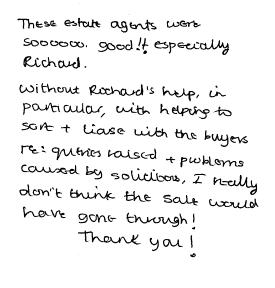 These estate agents were
soooooo. good!! especially
Richard.
Without Richard's help, in
particular, with helping to
sort + liase with the buyers
re: queries raised + problems
caused by solicitors, I really
don't think the sale would
have gone through!
Thank you!